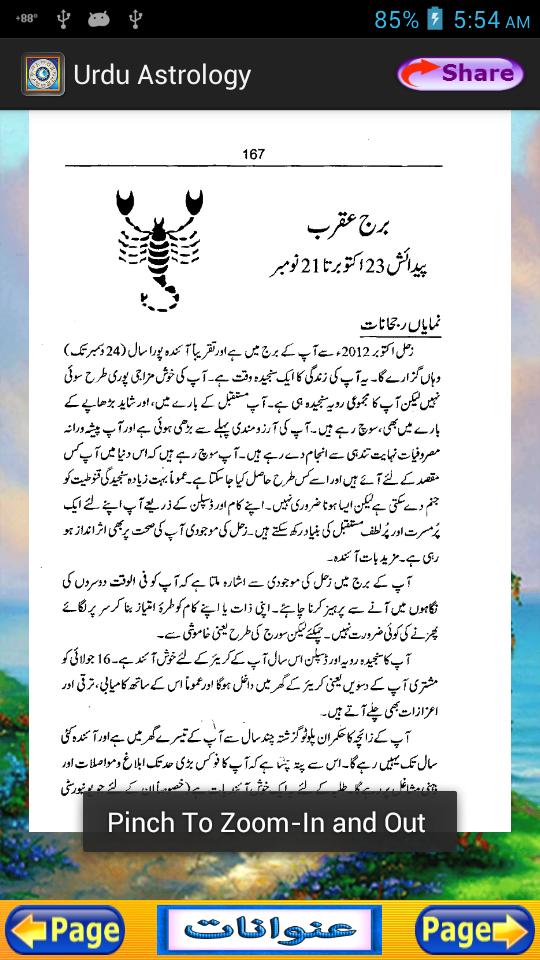 +88°
85%
5:54 AM
Urdu Astrology
Share
167
برج عقرب
پیدائش 23 اکتوبر تا 21 نومبر
نمایاں رجحانات
زحل اکتوبر 2012ء سے آپ کے برج میں ہے اور تقریباً آئندہ پورا سال (24 دسمبر تک)
وہاں گزارے گا۔ یہ آپ کی زندگی کا ایک سنجیدہ وقت ہے۔ آپ کی خوش مزاجی پوری طرح سوئی
نہیں لیکن آپ کا مجموعی رویہ سنجیدہ ہی ہے۔ آپ مستقبل کے بارے میں، اور شاید بڑھاپے کے
بارے میں بھی، سوچ رہے ہیں۔ آپ کی آرزومندی پہلے سے بڑھی ہوئی ہے اور آپ پیشہ ورانہ
مصروفیات نہایت تندہی سے انجام دے رہے ہیں۔ آپ سوچ رہے ہیں کہ اس دنیا میں آپ کس
مقصد کے لئے آئے ہیں اور اسے کس طرح حاصل کیا جا سکتا ہے۔ عموماً بہت زیادہ سنجیدگی قنوطیت کو
جنم دے سکتی ہے لیکن ایسا ہونا ضروری نہیں۔ اپنے کام اور ڈسپلن کے ذریعے آپ اپنے لئے ایک
پُرمسرت اور پُرلطف مستقبل کی بنیاد رکھ سکتے ہیں۔ زحل کی موجودی آپ کی صحت پر بھی اثر انداز ہو
رہی ہے۔ مزید بات آئندہ۔
آپ کے برج میں زحل کی موجودی سے اشارہ ملتا ہے کہ آپ کو فی الوقت دوسروں کی
نگاہوں میں آنے سے پرہیز کرنا چاہئے۔ اپنی ذات یا اپنے کام کو طرۂ امتیاز بنا کر سر پر لگائے
پھرنے کی کوئی ضرورت نہیں۔ چمکئے لیکن سورج کی طرح یعنی خاموشی سے۔
آپ کا سنجیدہ رویہ اور ڈسپلن اس سال آپ کے کریئر کے لئے خوش آئند ہے۔ 16 جولائی کو
مشتری آپ کے دسویں یعنی کریئر کے گھر میں داخل ہوگا اور عموماً اس کے ساتھ کامیابی، ترقی اور
اعزازات بھی چلے آتے ہیں۔
آپ کے زائچہ کا حکمران پلوٹو گزشتہ چند سال سے آپ کے تیسرے گھر میں ہے اور آئندہ کئی
سال تک یہیں رہے گا۔ اس سے پتہ چلتا ہے کہ آپ کا فوکس بڑی حد تک ابلاغ و مواصلات اور
Pinch To Zoom-In and Out
Page
عنوانات
Page